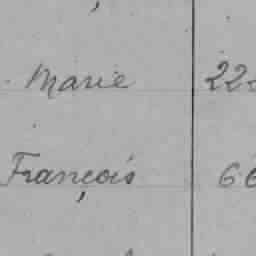 Marie 22
François 66